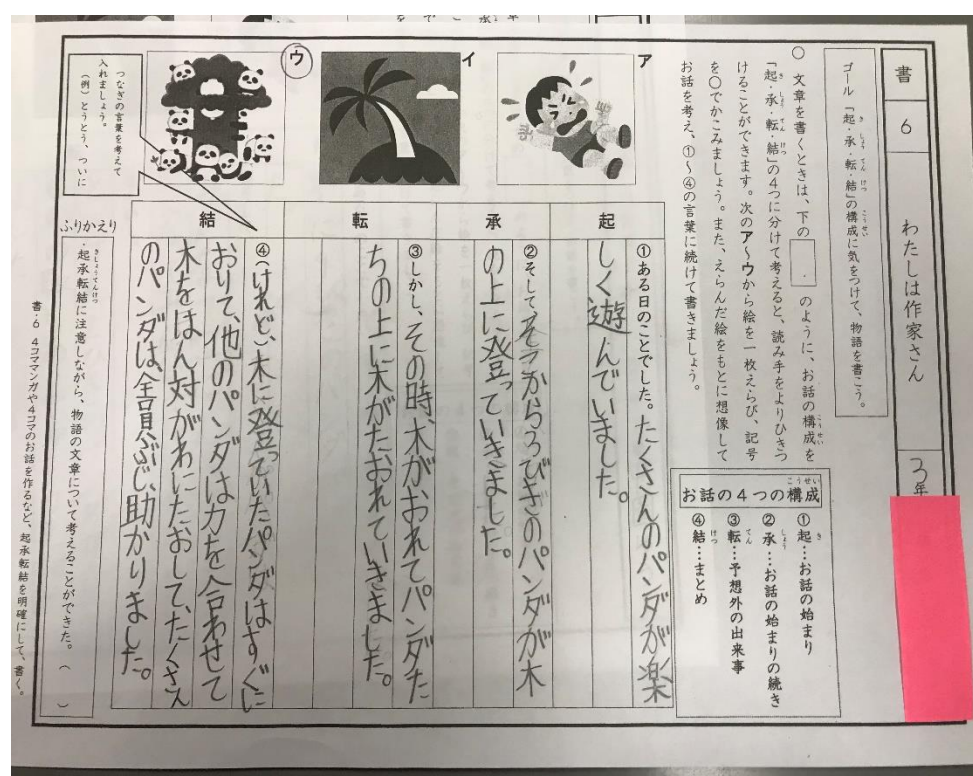 書
6
わたしは作家さん
3年
ゴール 「起・承・転・結」の構成に気をつけて、物語を書こう。
○ 文章を書くときは、下の
のように、お話の構成を
「起・承・転・結」の4つに分けて考えると、読み手をよりひきつ
けることができます。次のア～ウから絵を一枚えらび、記号
を○でかこみましょう。また、えらんだ絵をもとに想像して
お話を考え、①～④の言葉に続けて書きましょう。
お話の4つの構成
①起…お話の始まり
②承…お話の始まりの続き
③転…予想外の出来事
④結…まとめ
ア
イ
ウ
つなぎの言葉を考えて
入れましょう。
(例) とうとう、ついに
起
①ある日のことでした。たくさんのパンダが楽
しく遊んでいました。
承
②そして、そこから3びきのパンダが木
の上に登っていきました。
転
③しかし、その時、木がおれてパンダた
ちの上に木がたおれていきました。
結
④(けれど)、木に登っていたパンダはすぐに
おりて、他のパンダは力を合わせて
木をはん対がわにたおして、たくさん
のパンダは、全員ぶじ、助かりました。
ふりかえり
・起承転結に注意しながら、物語の文章について考えることができた。( )
書・6 4コママンガや4コマのお話を作るなど、起承転結を明確にして、書く。